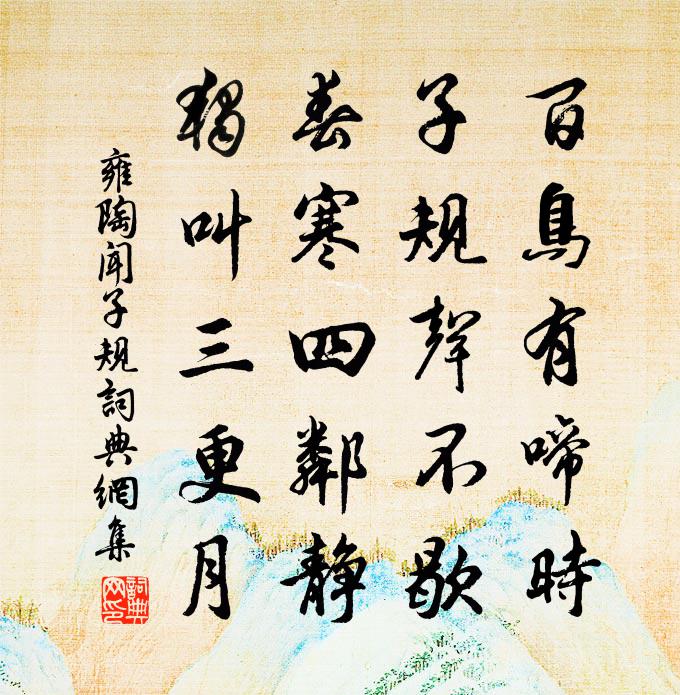 百鳥有啼時
子規聲不歇
春寒四鄰靜
獨叫三更月
雍陶聞子規詞典網集
詞典
网印